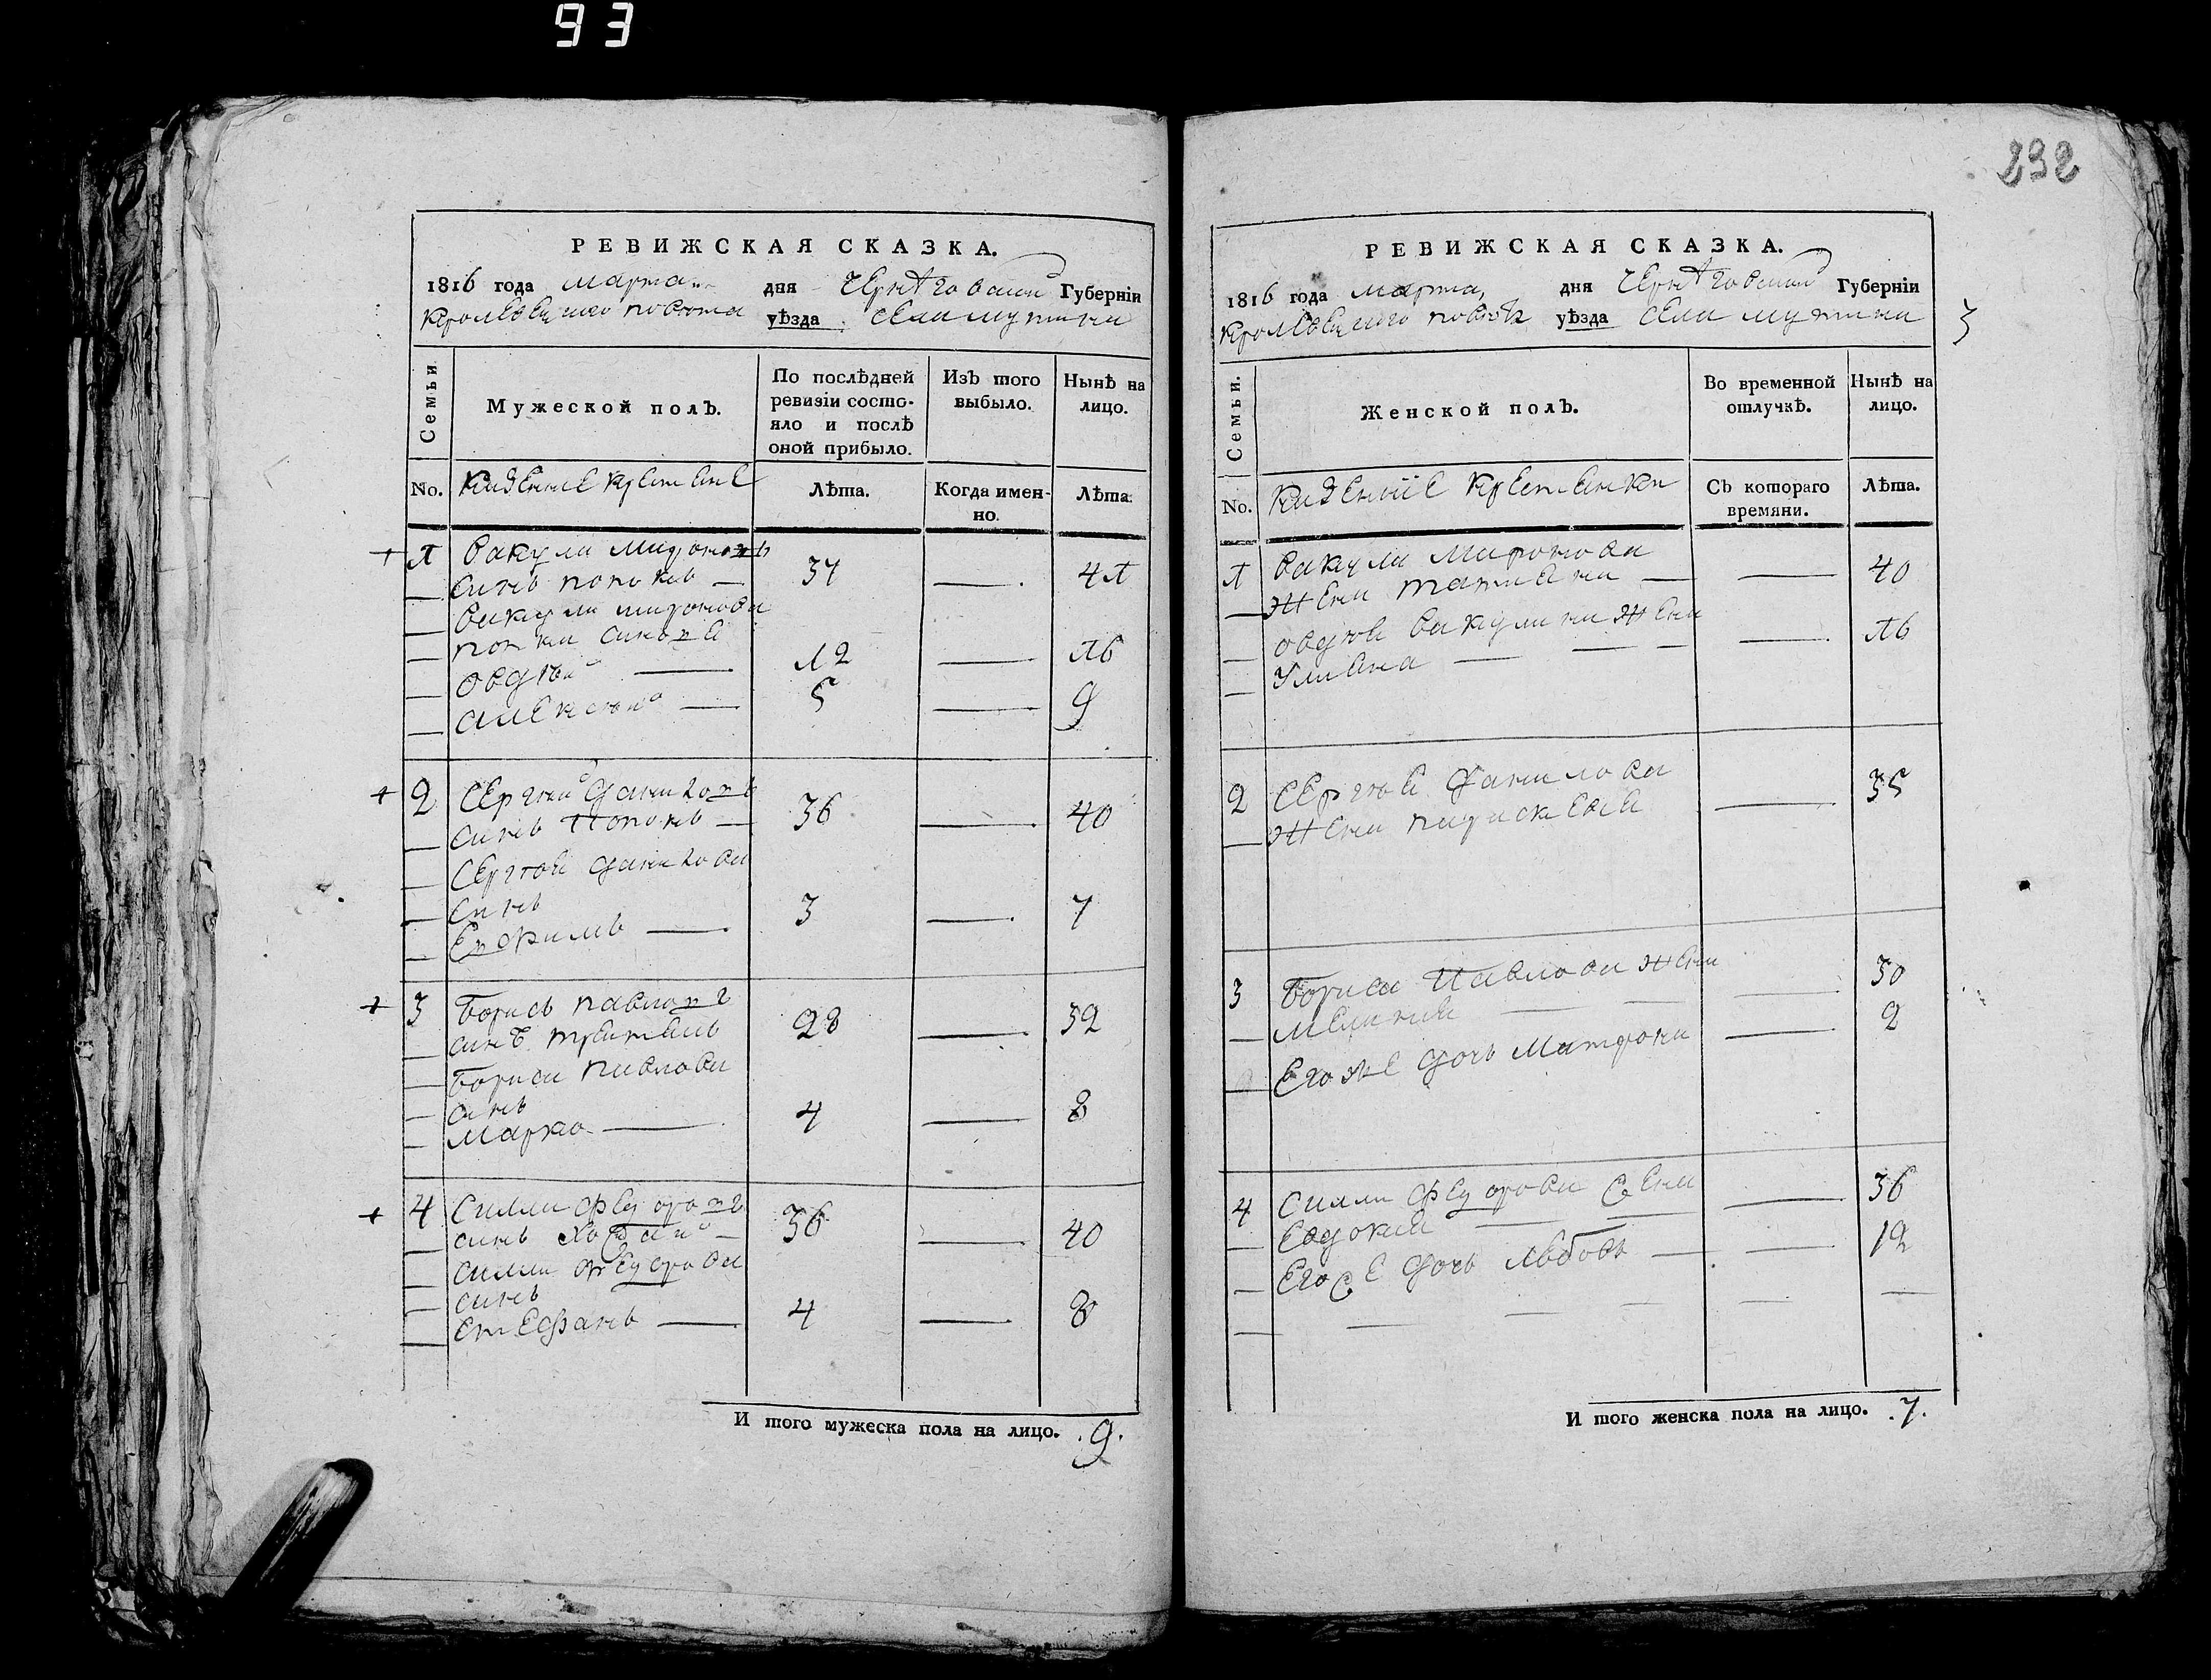 93
232
РЕВИЖСКАЯ СКАЗКА.
1816 года марта дня Чернѣговской Губерніи
Кролевецкого повѣта уѣзда села мутина
Семьи.
Мужеской полъ.
По послѣдней ревизіи состояло и послѣ оной прибыло.
Изъ того выбыло.
Нынѣ на лицо.
No.
казенние крестяне
Лѣта.
Когда именно.
Лѣта.
1 вакула мироновъ
синъ попокъ — 37 — 41
вакули миронова
сини
овдѣй — 12 — 16
алексѣй — 5 — 9
2 Сергѣй даниловъ
синъ Попокъ — 36 — 40
Сергѣя данилова
синъ
Ефимъ — 3 — 7
3 Борисъ павловъ
синъ 28 — 32
Бориса павлова
синъ
Марко — 4 — 8
4 Силла федоровъ
синъ 36 — 40
силли федорова
синъ
стефанъ — 4 — 8
И того мужеска пола на лицо. 9.
РЕВИЖСКАЯ СКАЗКА.
1816 года марта, дня Чернѣговской Губерніи
Кролевецкого повѣта уѣзда села мутина
3
Семьи.
Женской полъ.
Во временной отлучкѣ.
Нынѣ на лицо.
No.
казенніе крестянки
Съ котораго времяни.
Лѣта.
1 вакули миронова
жена татияна — — 40
овдѣя вакулина жена
Улияна — — — — 16
2 Сергѣя данилова
жена параскевия — 35
3 Бориса Павлова жена
мелания — — — 30
Его же дочь Матрона — 2
4 силли федорова жена — 36
Евдокия — —
Его же дочь любовъ — — 12
И того женска пола на лицо. .7.